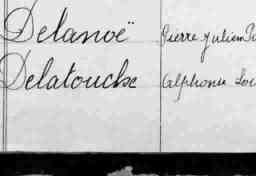 Delanoë Pierre Julien
Delatouche Alphonse